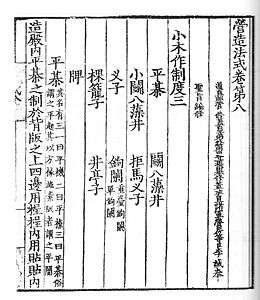 營造法式卷第八
通直郎管修蓋皇弟外第專一提舉修蓋班直諸軍營房等臣李誡奉
聖旨編修
小木作制度三
平棊　鬭八藻井
小鬭八藻井　拒馬叉子
叉子　鉤闌重臺鉤闌單鉤闌
棵籠子　井亭子
牌
平棊其名有三一曰平機二曰平橑三曰平棊俗
謂之平起其以方椽施素版者謂之平闇
造殿內平棊之制於背版之上四邊用桯桯內用貼貼內